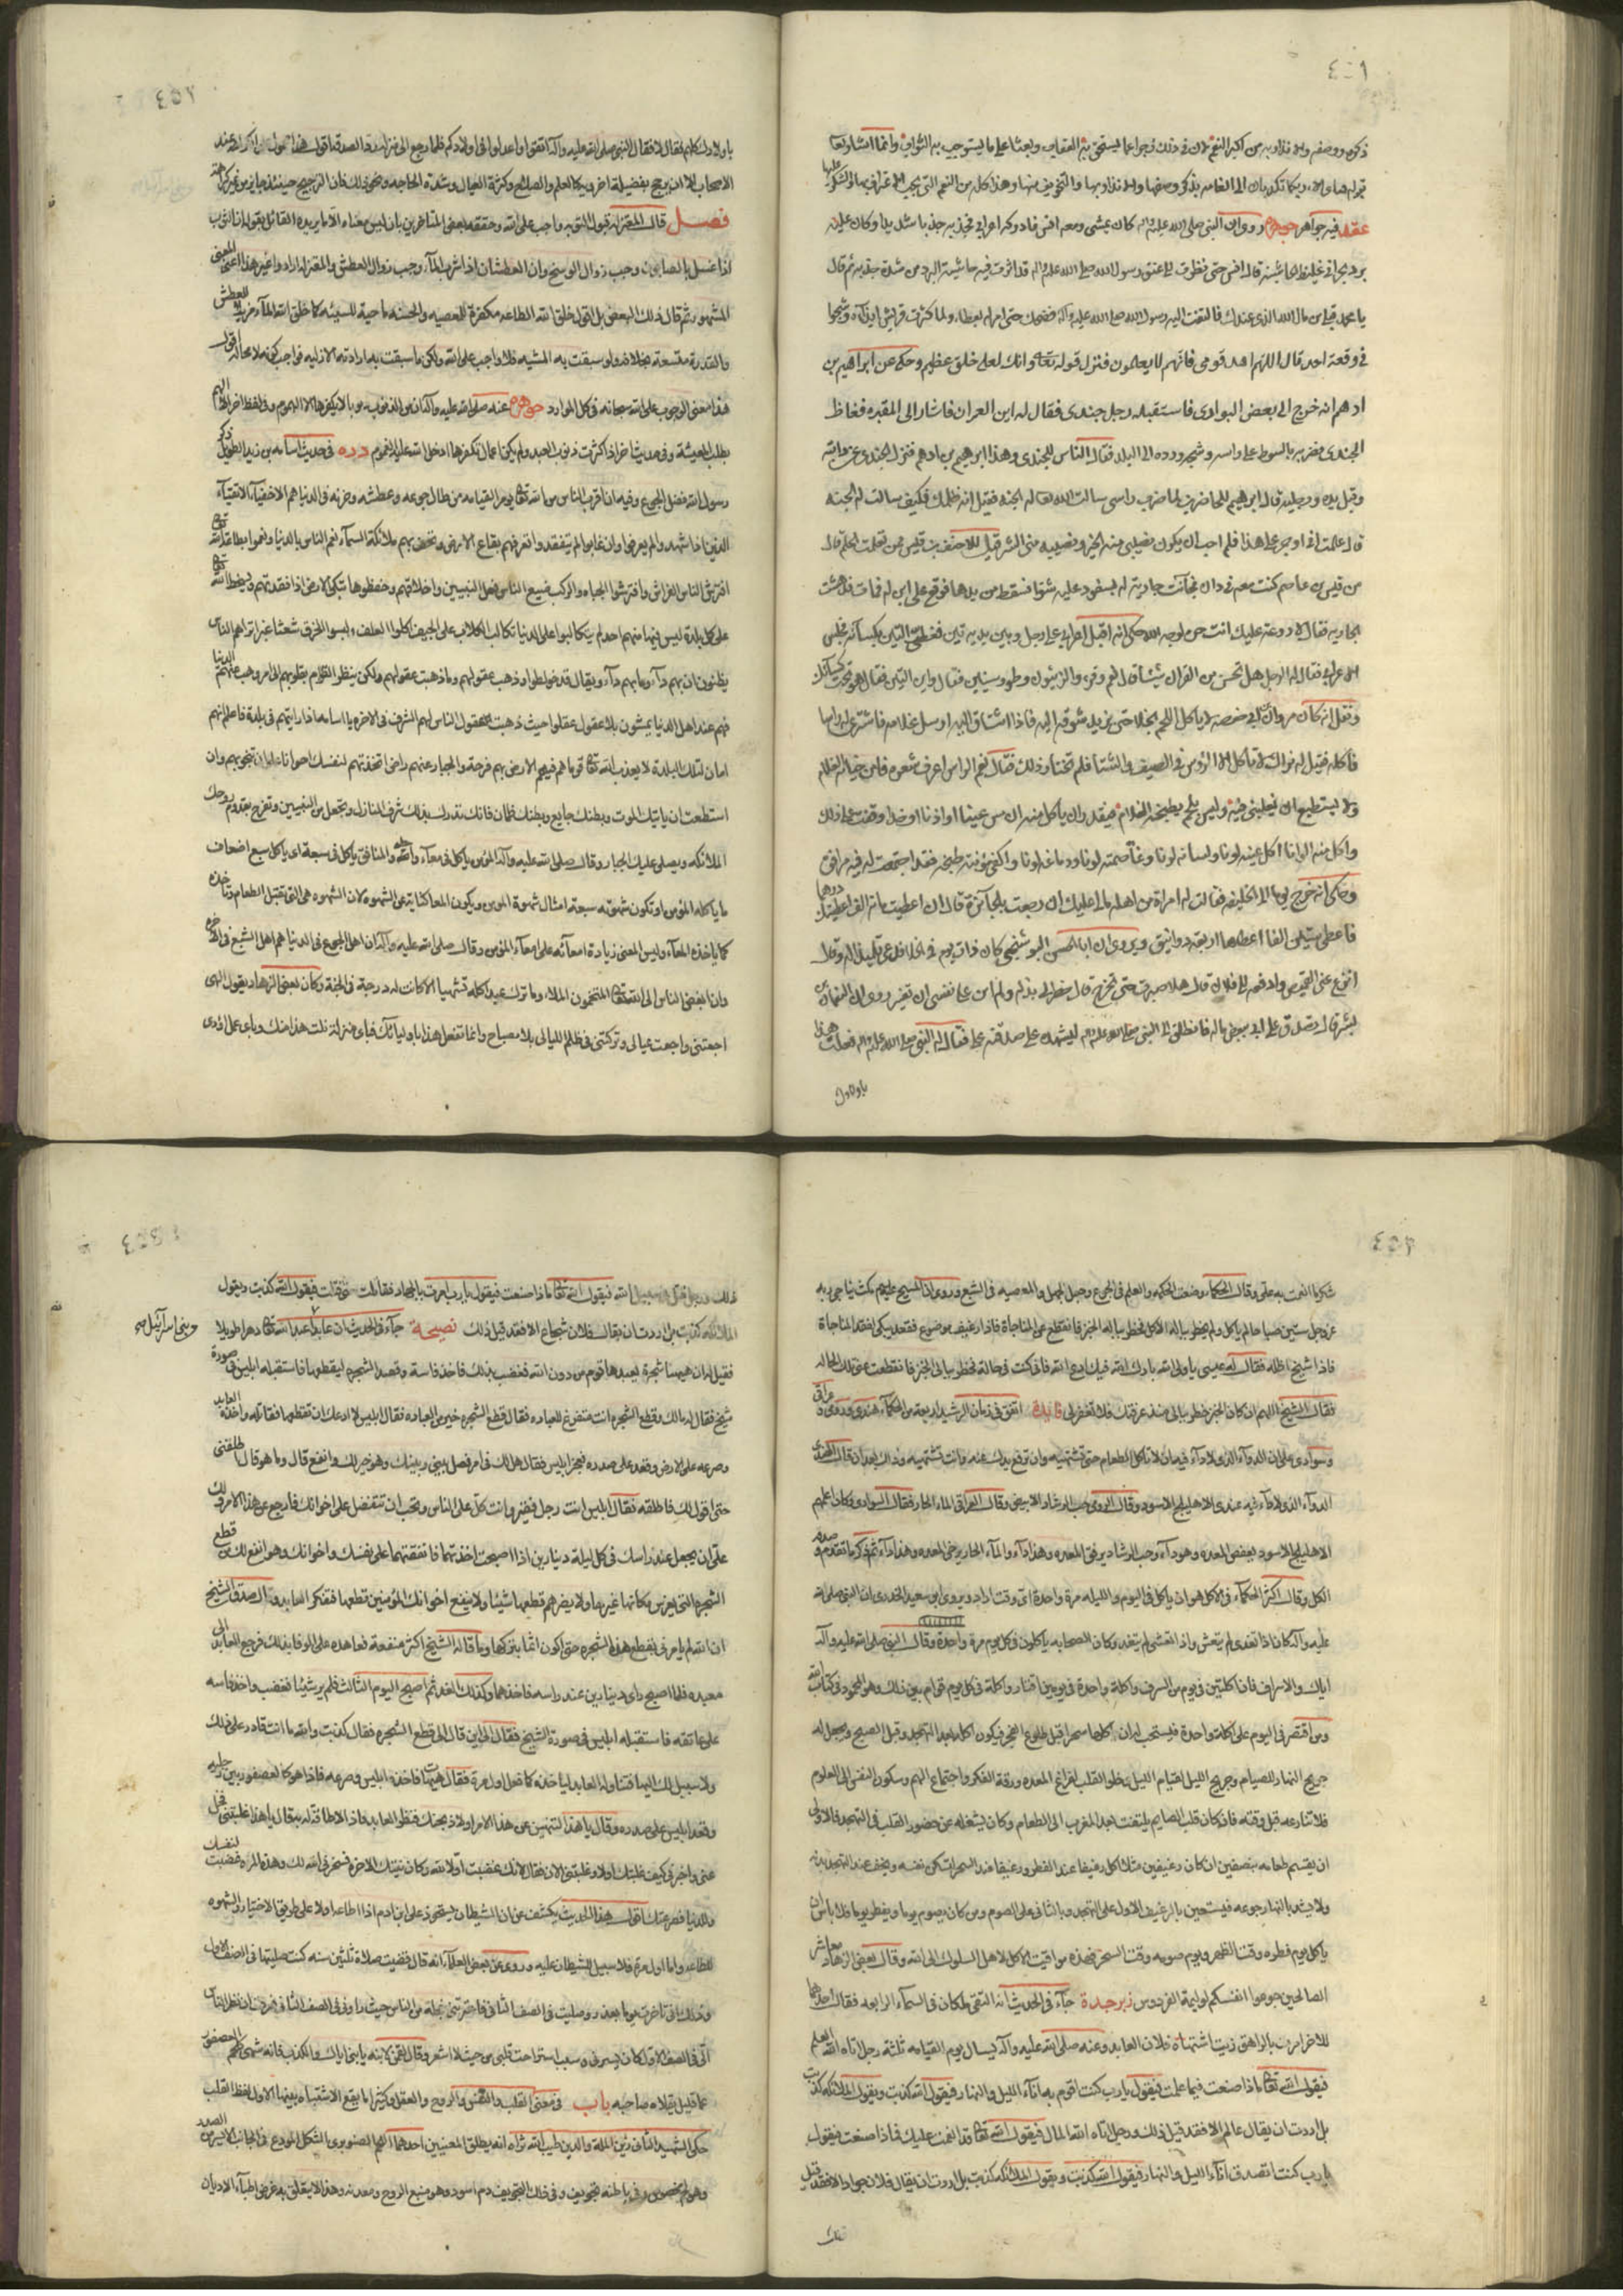 ذكره ووصفه والانذار به من اكبر النعم لان في ذلك زجرا عما يستحق به العقاب وبعثا على ما يستوجب به الثواب وانما اشار بها
عقد فيه جواهر جوهرة روى ان النبي صلى الله عليه واله كان يمشي ومعه انس فادركه اعرابي فجذبه جذبا شديدا وكان عليه
برد نجراني غليظ الحاشية قال انس حتى نظرت الى عنق رسول الله صلى الله عليه واله قد اثرت فيه حاشية البرد من شدة جذبه ثم قال
يا محمد هب لي من مال الله الذي عندك فالتفت اليه رسول الله صلى الله عليه وآله فضحك حتى امر له بعطاء ولما كثرت قريش اذاه وشجوا
في وقعة احد قال اللهم اهد قومي فانهم لا يعلمون فنزل قوله تعالى وانك لعلى خلق عظيم وحكى عن ابراهيم بن
ادهم انه خرج الى بعض البوادي فاستقبله رجل جندي فقال له اين العمران فاشار الى المقبره فغاظ
الجندي فضربه بالسوط على راسه وشجه ورده الى البلد فقال الناس للجندي وهذا ابراهيم بن ادهم فنزل الجندي عن دابته
وقبل يده ورجليه قال ابراهيم للحاضرين لما ضرب راسي سالت الله تعالى له الجنة فقيل انه ظلمك فكيف سالت له الجنة
قال علمت اني اوجر على هذا فلم احب ان يكون نصيبي منه الخير ونصيبه مني الشر قيل للاحنف بن قيس ممن تعلمت الحلم قال
من قيس بن عاصم كنت معه في داره فجائت جارية له بسفود عليه شوا فسقط من يدها فوقع على ابن له فمات فدهشت
الجارية فقال لا روعة عليك انت حرة لوجه الله حكى انه اقبل اعرابي على رجل وبين يديه تين فغطى التين بكسائه فجلس
الاعرابي فقال له الرجل هل تحسن من القران شيئا قال نعم وقرء والزيتون وطور سينين فقال واين التين فقال هو تحت كسائك
ونقل انه كان مروان بن ابي حفصه لا ياكل اللحم بخلا حتى يزيد شوقه اليه فاذا اشتاق اليه ارسل غلامه فاشترى له راسا
فاكله فقيل له نراك لا تاكل الا الرؤس في الصيف والشتا فلم تختار ذلك فقال نعم الراس اعرف سعره فامن خيانة الغلام
ولا يستطيع ان يغبنني فيه وليس بلحم يطبخه الغلام فيقدر ان ياكل منه ان مس عينا او اذنا او خدا وقفت على ذلك
واكل منه الوانا اكل عينه لونا ولسانه لونا وغلصمته لونا ودماغه لونا واكفى مؤنة طبخه فقد اجتمعت لي فيه مرافق
وحكى انه خرج يوما الى الخليفة فقالت له امراة من اهله مالي عليك ان رجعت بالجائزة قال ان اعطيت مائة الف اعطيتك درهما
فاعطي ستين الفا اعطاها اربعة دوانيق ويروى ان ابا الحسن البوشنجي كان ذات يوم في الخلا فدعى تلميذا له وقال
انزع عني القميص وادفعه الى فلان قال هلا صبرت حتى تخرج قال خطر لي بذله ولم امن على نفسي ان تغير روى ان النعمان بن
بشير قال تصدق علي ابي ببعض ماله فانطلق الى النبي صلى الله عليه واله ليشهده على صدقته علي فقال له النبي صلى الله عليه واله فعلت هذا
باولادك
باولادك كلهم فقال لا فقال النبي صلى الله عليه وآله اتقوا الله واعدلوا في اولادكم فلما رجع الى منزله رد الصدقة اقول هذا محمول على الكراهة عند
الاصحاب الا ان يرجح بفضيلة اخرى كالعلم والصلاح وكثرة العيال وشدة الحاجه ونحو ذلك فان الترجيح حينئذ جايز من غير كراهة
فصل قالت المعتزله قبول التوبه واجب على الله وحققه بعض المتاخرين بان ليس معناه الا ما يريده القائل بقوله ان الثوب
اذا غسل بالصابون وجب زوال الوسخ وان العطشان اذا شرب الماء وجب زوال العطش والمعتزله ارادوا غير هذا المعنى
المشهور ثم قال ذلك البعض بل القول خلق الله الطاعه مكفرة للمعصيه والحسنه ماحية للسيئه كما خلق الله الماء مزيلا للعطش
والقدرة متسعة بخلافه لو سبقت به المشيه فلا واجب على الله ولكن ما سبقت به ارادته الازليه فواجب كونه لا محالة اقول
هذا معنى الوجوب على الله سبحانه في كل الموارد جوهرة عنه صلى الله عليه وآله ان من الذنوب ذنوبا لا يكفرها الا الهموم وفي لفظ اخر الا الهم
بطلب المعيشة وفي حديث اخر اذا كثرت ذنوب العبد ولم يكن له اعمال تكفرها ادخل الله عليه الغموم درة في حديث اسامه بن زيد الطويل ذكر
رسول الله فضل الجوع وفيه ان اقرب الناس من الله تعالى يوم القيامه من طال جوعه وعطشه وحزنه في الدنيا هم الاخفياء الاتقياء
الذين اذا شهدوا لم يعرفوا وان غابوا لم يتفقدوا تعرفهم بقاع الارض وتحف بهم ملائكة السماء نعم الناس بالدنيا ونعموا بطاعة الله
افترش الناس الفراش وافترشوا الجباه والركب ضيع الناس فعل النبيين واخلاقهم وحفظوها تبكي الارض اذا فقدتهم ويسخط الله
على كل بلدة ليس فيها منهم احد لم يتكالبوا على الدنيا تكالب الكلاب على الجيف اكلوا العلف ولبسوا الخرق شعثا غبرا تراهم الناس
يظنون ان بهم داء وما بهم داء ويقال قد خولطوا وذهب عقولهم وما ذهبت عقولهم ولكن ينظر القوم بقلوبهم الى امر ذهب عنهم الدنيا
فهم عند اهل الدنيا يمشون بلا عقول عقلوا حيث ذهبت عقول الناس لهم الشرف في الاخره يا اسامه اذا رايتهم في بلدة فاعلم انهم
امان لتلك البلدة لا يعذب الله تعالى قوما هم فيهم الارض بهم فرحة والجبار عنهم راض اتخذهم لنفسك اخوانا عسى ان تنجو بهم وان
استطعت ان ياتيك الموت وبطنك جايع وبطنك ظمان فانك تدرك بذلك شرف المنازل وتحل مع النبيين وتفرح بقدوم روحك
الملائكه ويصلي عليك الجبار وقال صلى الله عليه وآله المؤمن ياكل في معاء واحد والمنافق ياكل في سبعة اي ياكل سبع اضعاف
ما ياكله المؤمن او تكون شهوته سبعة امثال شهوة المؤمن ويكون المعا كناية عن الشهوه لان الشهوه هي التي تقبل الطعام وتاخذه
كما ياخذه المعاء وليس المعنى زيادة امعائه على امعاء المؤمن وقال صلى الله عليه وآله ان اهل الجوع في الدنيا هم اهل الشبع في الاخره
وان ابغض الناس الى الله تعالى المتخمون الملاء وما ترك عبد اكلة تشهيها الا كانت له درجة في الجنة وكان بعض الزهاد يقول الهي
اجعتني واجعت عيالي وتركتني في ظلم الليالي بلا مصباح وانما تفعل هذا باوليائك فباي منزلة نلت هذا منك وباي عمل اؤدي
شكر ما انعمت به علي وقال الحكماء وضعت الحكمه والعلم في الجوع وجعل الجهل والمعصيه في الشبع وروى ان المسيح عليه السلام مكث يناجي ربه
عز وجل ستين صباحا لم ياكل ولم يخطر بباله الاكل فخطر بباله الخبز فانقطع عن المناجاة فاذا رغيف موضوع فقعد يبكي لفقد المناجاة
فاذا شيخ اظله فقال له عيسى يا ولي الله بارك الله فيك ادع الله فاني كنت في حالة فخطر ببالي الخبز فانقطعت عني تلك الحاله
فقال الشيخ اللهم ان كان الخبز خطر ببالي منذ عرفتك فلا تغفر لي فائدة اتفق في زمان الرشيد اربعة من الحكماء هندي ورومي وعراقي
وسوادي على ان الدواء الذي لا داء فيه ان لا تاكل الطعام حتى تشتهيه وان ترفع يدك عنه وانت تشتهيه وذلك بعد ان قال الهندي
الدواء الذي لا داء فيه عندي الاهليلج الاسود وقال الرومي حب الرشاد الابيض وقال العراقي الماء الحار فقال السوادي وكان اعلمهم
الاهليلج الاسود يعفص المعده وهو داء وحب الرشاد يرقق المعده وهذا داء والماء الحار يرخي المعده وهذا داء ثم ذكر ما تقدم وصدقه
الكل وقال اكثر الحكماء في الاكل هو ان ياكل في اليوم والليله مرة واحدة اي وقت اراد ويروى ابو سعيد الخدري ان النبي صلى الله
عليه وآله كان اذا تغدى لم يتعش واذا تعشى لم يتغد وكان الصحابه ياكلون في كل يوم مرة واحدة وقال النبي صلى الله عليه وآله
اياك والاسراف فان اكلتين في يوم من السرف واكلة واحدة في يومين اقتار واكلة في كل يوم قوام بين ذلك وهو المحمود في كتاب الله
ومن اقتصر في اليوم على اكلة واحدة فيستحب له ان ياكلها سحرا قبل طلوع الفجر فيكون اكله بعد التهجد وقبل الصبح ويحصل له
جوع النهار للصيام وجوع الليل لقيام الليل وخلو القلب لفراغ المعده ورقة الفكر واجتماع الهم وسكون النفس الى العلوم
فلا تنازعه قبل وقته فان كان قلب الصايم يلتفت بعد المغرب الى الطعام وكان يشغله عن حضور القلب في التهجد فالاولى
ان يقسم طعامه بنصفين ان كان رغيفين مثلا اكل رغيفا عند الفطور ورغيفا عند السحر لتسكن نفسه ويخف عند التهجد بدنه
ولا يشتد بالنهار جوعه فيستعين بالرغيف الاول على التهجد وبالثاني على الصوم ومن كان يصوم يوما ويفطر يوما فلا باس ان
ياكل يوم فطره وقت الظهر ويوم صومه وقت السحر فهذه مواقيت الاكل لاهل السلوك الى الله وقال بعض الزهاد معاشر
الصالحين جوعوا انفسكم لوليمة الفردوس زبرجدة جاء في الحديث انه التقى ملكان في السماء الرابعه فقال احدهما
للاخر امرت باراهق زيت اشتهاه فلان العابد وعنه صلى الله عليه وآله يسال يوم القيامه ثلثة رجل اتاه الله العلم
فيقول الله تعالى ماذا صنعت فيما علمت فيقول يا رب كنت اقوم به اناء الليل والنهار فيقول الله كذبت ويقول الملائكه كذبت
بل اردت ان يقال عالم الا فقد قيل ذلك ورجل اتاه الله المال فيقول الله تعالى قد انعمت عليك فماذا صنعت فيقول
يا رب كنت اتصدق اناء الليل والنهار فيقول الله كذبت ويقول الملائكه كذبت بل اردت ان يقال فلان جواد الا فقد قيل
ذلك ورجل قتل في سبيل الله فيقول الله تعالى ماذا صنعت فيقول يا رب امرت بالجهاد فقاتلت حتى قتلت فيقول الله كذبت ويقول
الملائكه كذبت بل اردت ان يقال فلان شجاع الا فقد قيل ذلك نصيحة جاء في الحديث ان عابدا عبد الله تعالى دهرا طويلا
وبني اسرائيل صح
فقيل له ان هيهنا شجرة يعبدها قوم من دون الله فغضب بذلك فاخذ فاسه وقصد الشجره ليقطعها فاستقبله ابليس في صورة
شيخ فقال له مالك وقطع الشجره انت متفرغ للعباده فقال قطع الشجره خير من العباده فقال ابليس لا ادعك ان تقطعها فقاتله واخذه العابد
وصرعه على الارض وقعد على صدره فعجز ابليس فقال هل لك في امر فصل بيني وبينك وهو خير لك وانفع قال وما هو قال اطلقني
حتى اقول لك فاطلقه فقال ابليس انت رجل فقير وانت كل على الناس وتحب ان تتفضل على اخوانك فارجع عن هذا الامر ولك
علي ان يجعل عند راسك في كل ليلة دينارين اذا اصبحت اخذتهما فانفقتهما على نفسك واخوانك وهو انفع لك من قطع
الشجره التي يغرس مكانها غيرها ولا يضرهم قطعها شيئا ولا ينفع اخوانك المؤمنين قطعها فتفكر العابد وقال صدق الشيخ
ان الله لم يامرني بقطع هذه الشجره حتى اكون اثما بتركها وما قاله الشيخ اكثر منفعة فعاهده على الوفا بذلك فرجع العابد الى
معبده فلما اصبح راى دينارين عند راسه فاخذهما وكذلك الغد ثم اصبح اليوم الثالث فلم ير شيئا فغضب واخذ فاسه
على عاتقه فاستقبله ابليس في صورة الشيخ فقال الى اين قال الى قطع الشجره فقال كذبت والله ما انت قادر على ذلك
ولا سبيل لك اليها فتناوله العابد لياخذه كما فعل اول مرة فقال هيهات فاخذه ابليس وصرعه فاذا هو كالعصفور بين رجليه
وقعد ابليس على صدره وقال يا هذا لتنتهين عن هذا الامر او لاذبحنك فنظر العابد فاذا لا طاقة له به فقال يا هذا غلبتني فخل
عني واخبرني كيف غلبتك اولا وغلبتني الان فقال لانك غضبت اولا لله وكان نيتك الاخره فسخرني الله لك وهذه المره غضبت لنفسك
وللدنيا فصرعتك اقول هذا الحديث يكشف عن ان الشيطان يستحوذ على ابن ادم اذا اطاعه اولا على طريق الاختيار والشهوه
للطاعه واما اول مرة فلا سبيل للشيطان عليه وروى عن بعض العلماء انه قال قضيت صلاة ثلثين سنه كنت صليتها في الصف الاول
وذلك اني تاخرت يوما لعذر وصليت في الصف الثاني فاعترتني خجلة من الناس حيث راوني في الصف الثاني فعرفت ان نظر الناس
الي في الصف الاول كان يسرني وسبب استراحت قلبي من حيث لا اشعر وقال لقمن لابنه يا بني اياك والكذب فانه شهي كلحم العصفور
عما قليل يقلاه صاحبه باب في معنى القلب والنفس والروح والعقل وكثيرا ما يقع الاشتباه بينها الاول لفظ القلب
حكى الشهيد الثاني زين المله والدين طيب الله ثراه انه يطلق لمعنيين احدهما اللحم الصنوبري الشكل المودع في الجانب الايسر من الصدر
وهو لحم مخصوص وفي باطنه تجويف وفي ذلك التجويف دم اسود وهو منبع الروح ومعدنه وهذا لا يتعلق به غرض اطباء الاديان